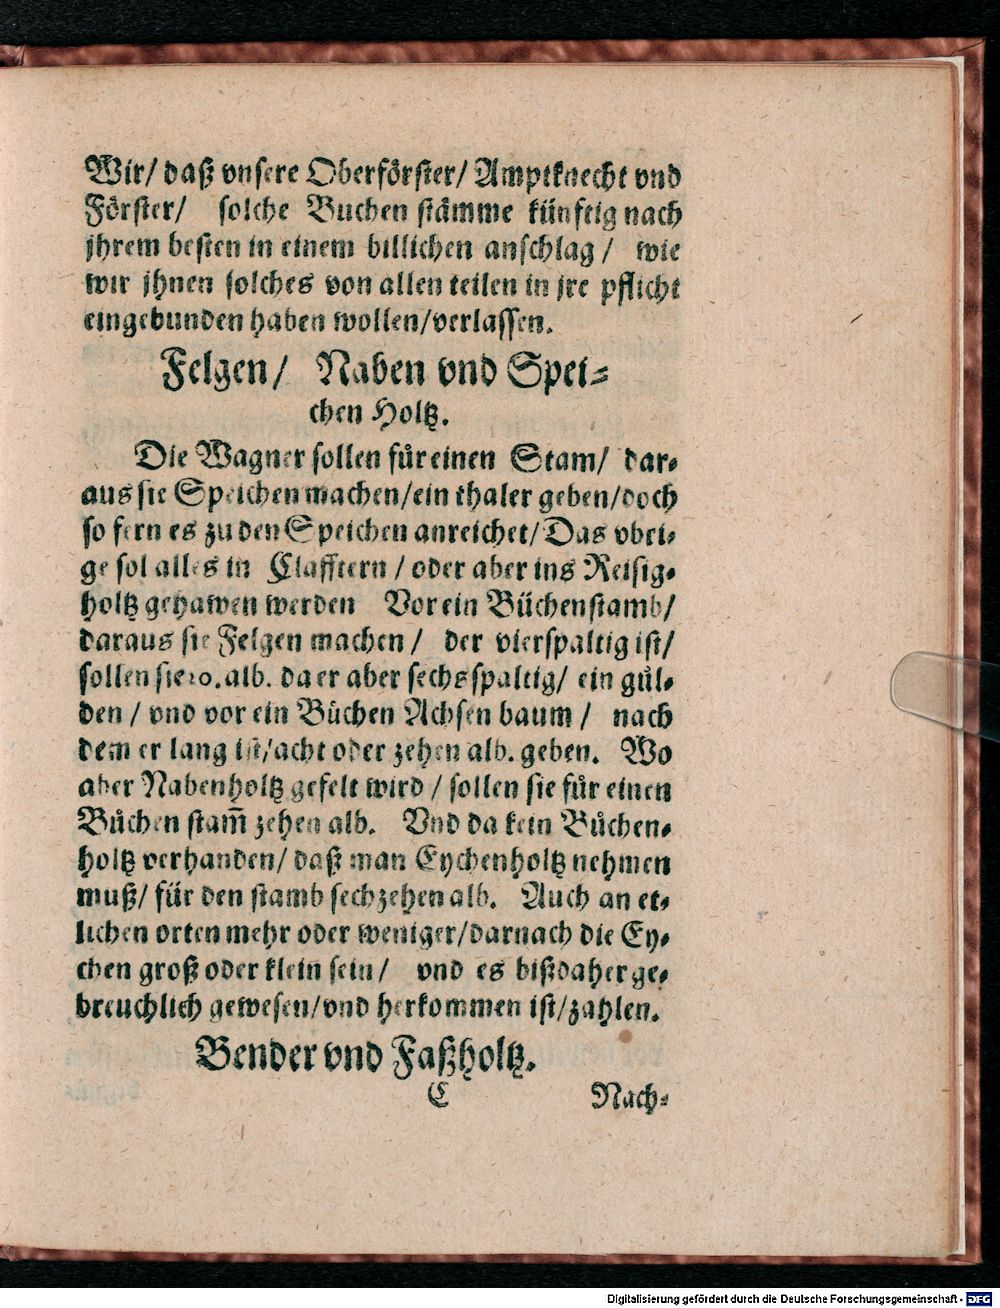 Wir/ daß vnsere Oberförster/ Amptknecht vnd
Förster/ solche Buchen stämme künftig nach
jhrem besten in einem billichen anschlag / wie
wir jhnen solches von allen teilen in jre pflicht
eingebunden haben wollen/verlassen.
Felgen/ Naben vnd Spei⸗
chen Holtz.
Die Wagner sollen für einen Stam/ dar⸗
aus sie Speichen machen/ein thaler geben/doch
so fern es zu den Speichen anreichet/Das vbri⸗
ge sol alles in Clafftern / oder aber ins Reisig⸗
holtz gehawen werden Vor ein Büchenstamb/
daraus sie Felgen machen / der vierspaltig ist/
sollen sie 20. alb. da er aber sechsspaltig/ ein gül⸗
den / vnd vor ein Büchen Achsen baum / nach
dem er lang ist/acht oder zehen alb. geben. Wo
aber Nabenholtz gefelt wird / sollen sie für einen
Bůchen stam̃ zehen alb. Vnd da kein Bůchen⸗
holtz verhanden/ daß man Eychenholtz nehmen
muß/ für den stamb sechzehen alb. Auch an et⸗
lichen orten mehr oder weniger/darnach die Ey⸗
chen groß oder klein sein / vnd es bißdaher ge⸗
breuchlich gewesen/vnd herkommen ist/zahlen.
Bender vnd Faßholtz.
C Nach⸗
Digitalisierung gefördert durch die Deutsche Forschungsgemeinschaft - DFG